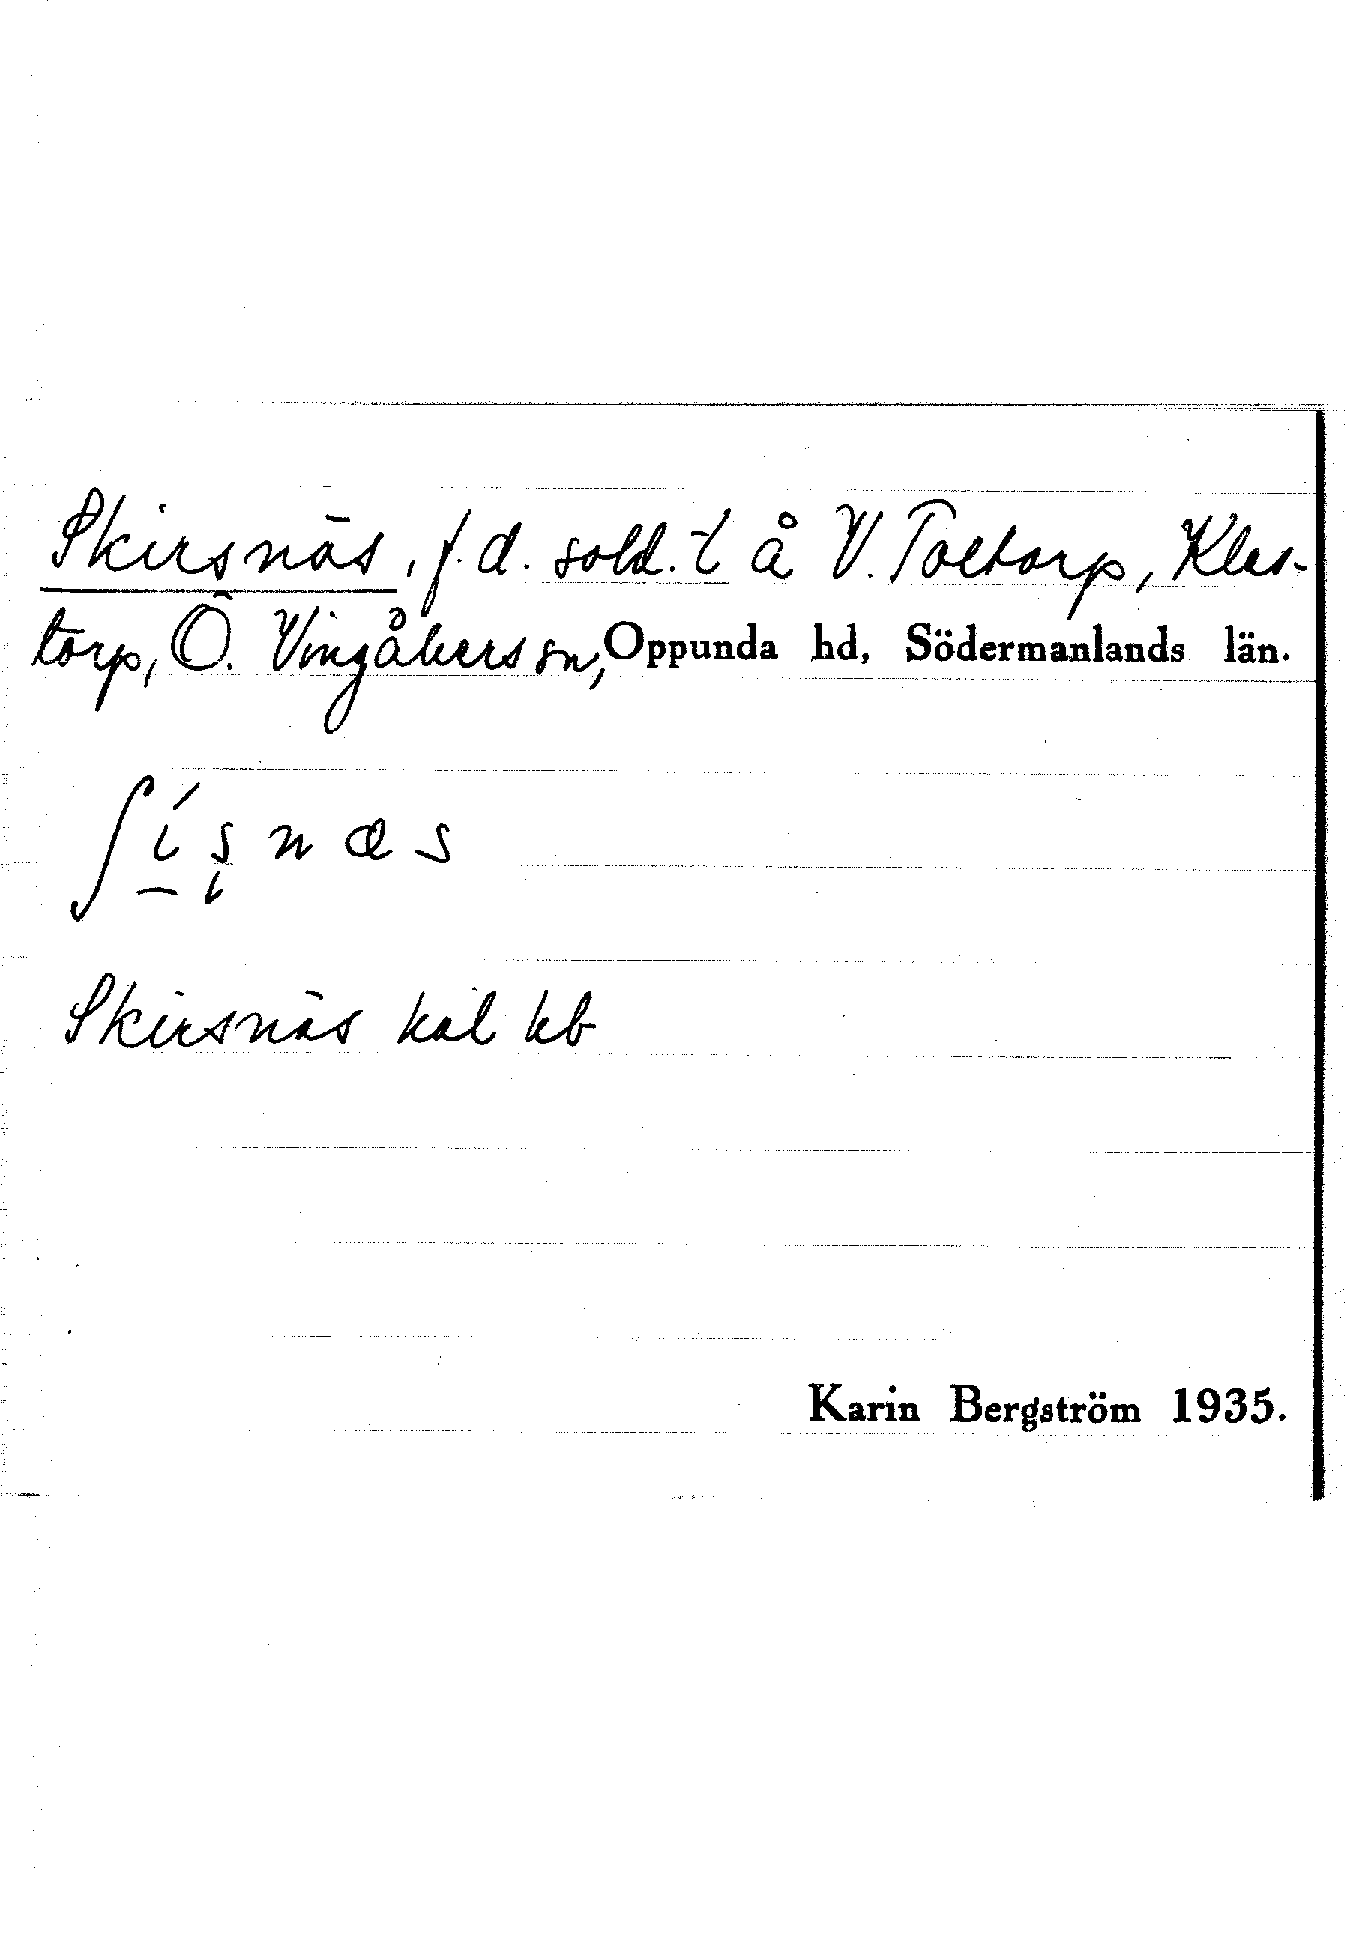 Skirsnäs, f.d. sold. t å V. Toltorp, Klas-
torp, Ö. Vingåkers sn, Oppunda hd, Södermanlands län.
ʃi̠ʹşnæs
Skirsnäs kal kb
Karin Bergström 1935.